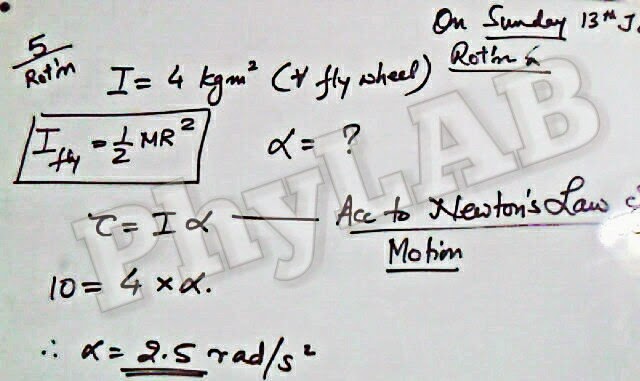 On Sunday 13th J
5
Rot'n
I = 4 kgm² (∀ fly wheel)
Rot'n
I fly = 1/2 MR²
α = ?
τ = I α — Acc to Newton's Law
Motion
10 = 4 × α.
∴ α = 2.5 rad/s²
PhyLAB